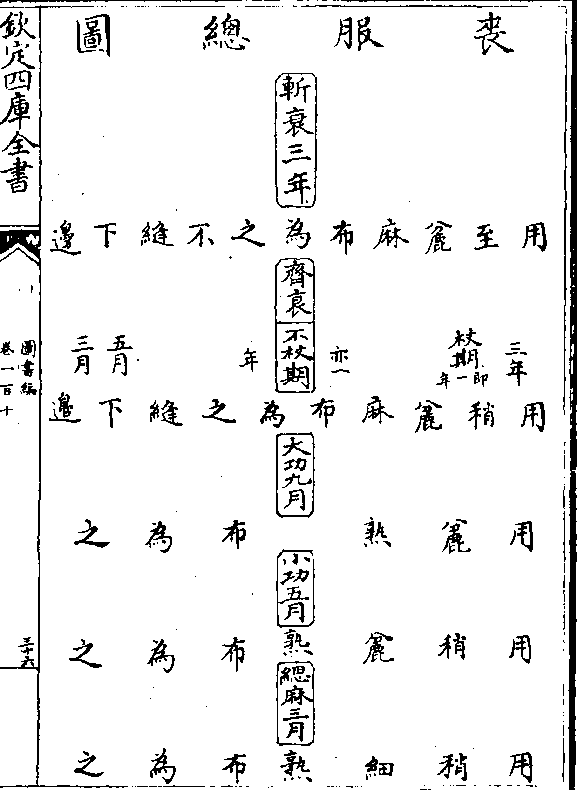 喪服總圖
斬衰三年
用至麄麻布為之不縫下邊
齊衰
三年
杖期即一年
不杖期
亦一年
五月
三月
用稍麄麻布為之縫下邊
大功九月
用麄熟布為之
小功五月
用稍麄熟布為之
緦麻三月
用稍細熟布為之
欽定四庫全書
圖書編
卷一百十
三十六